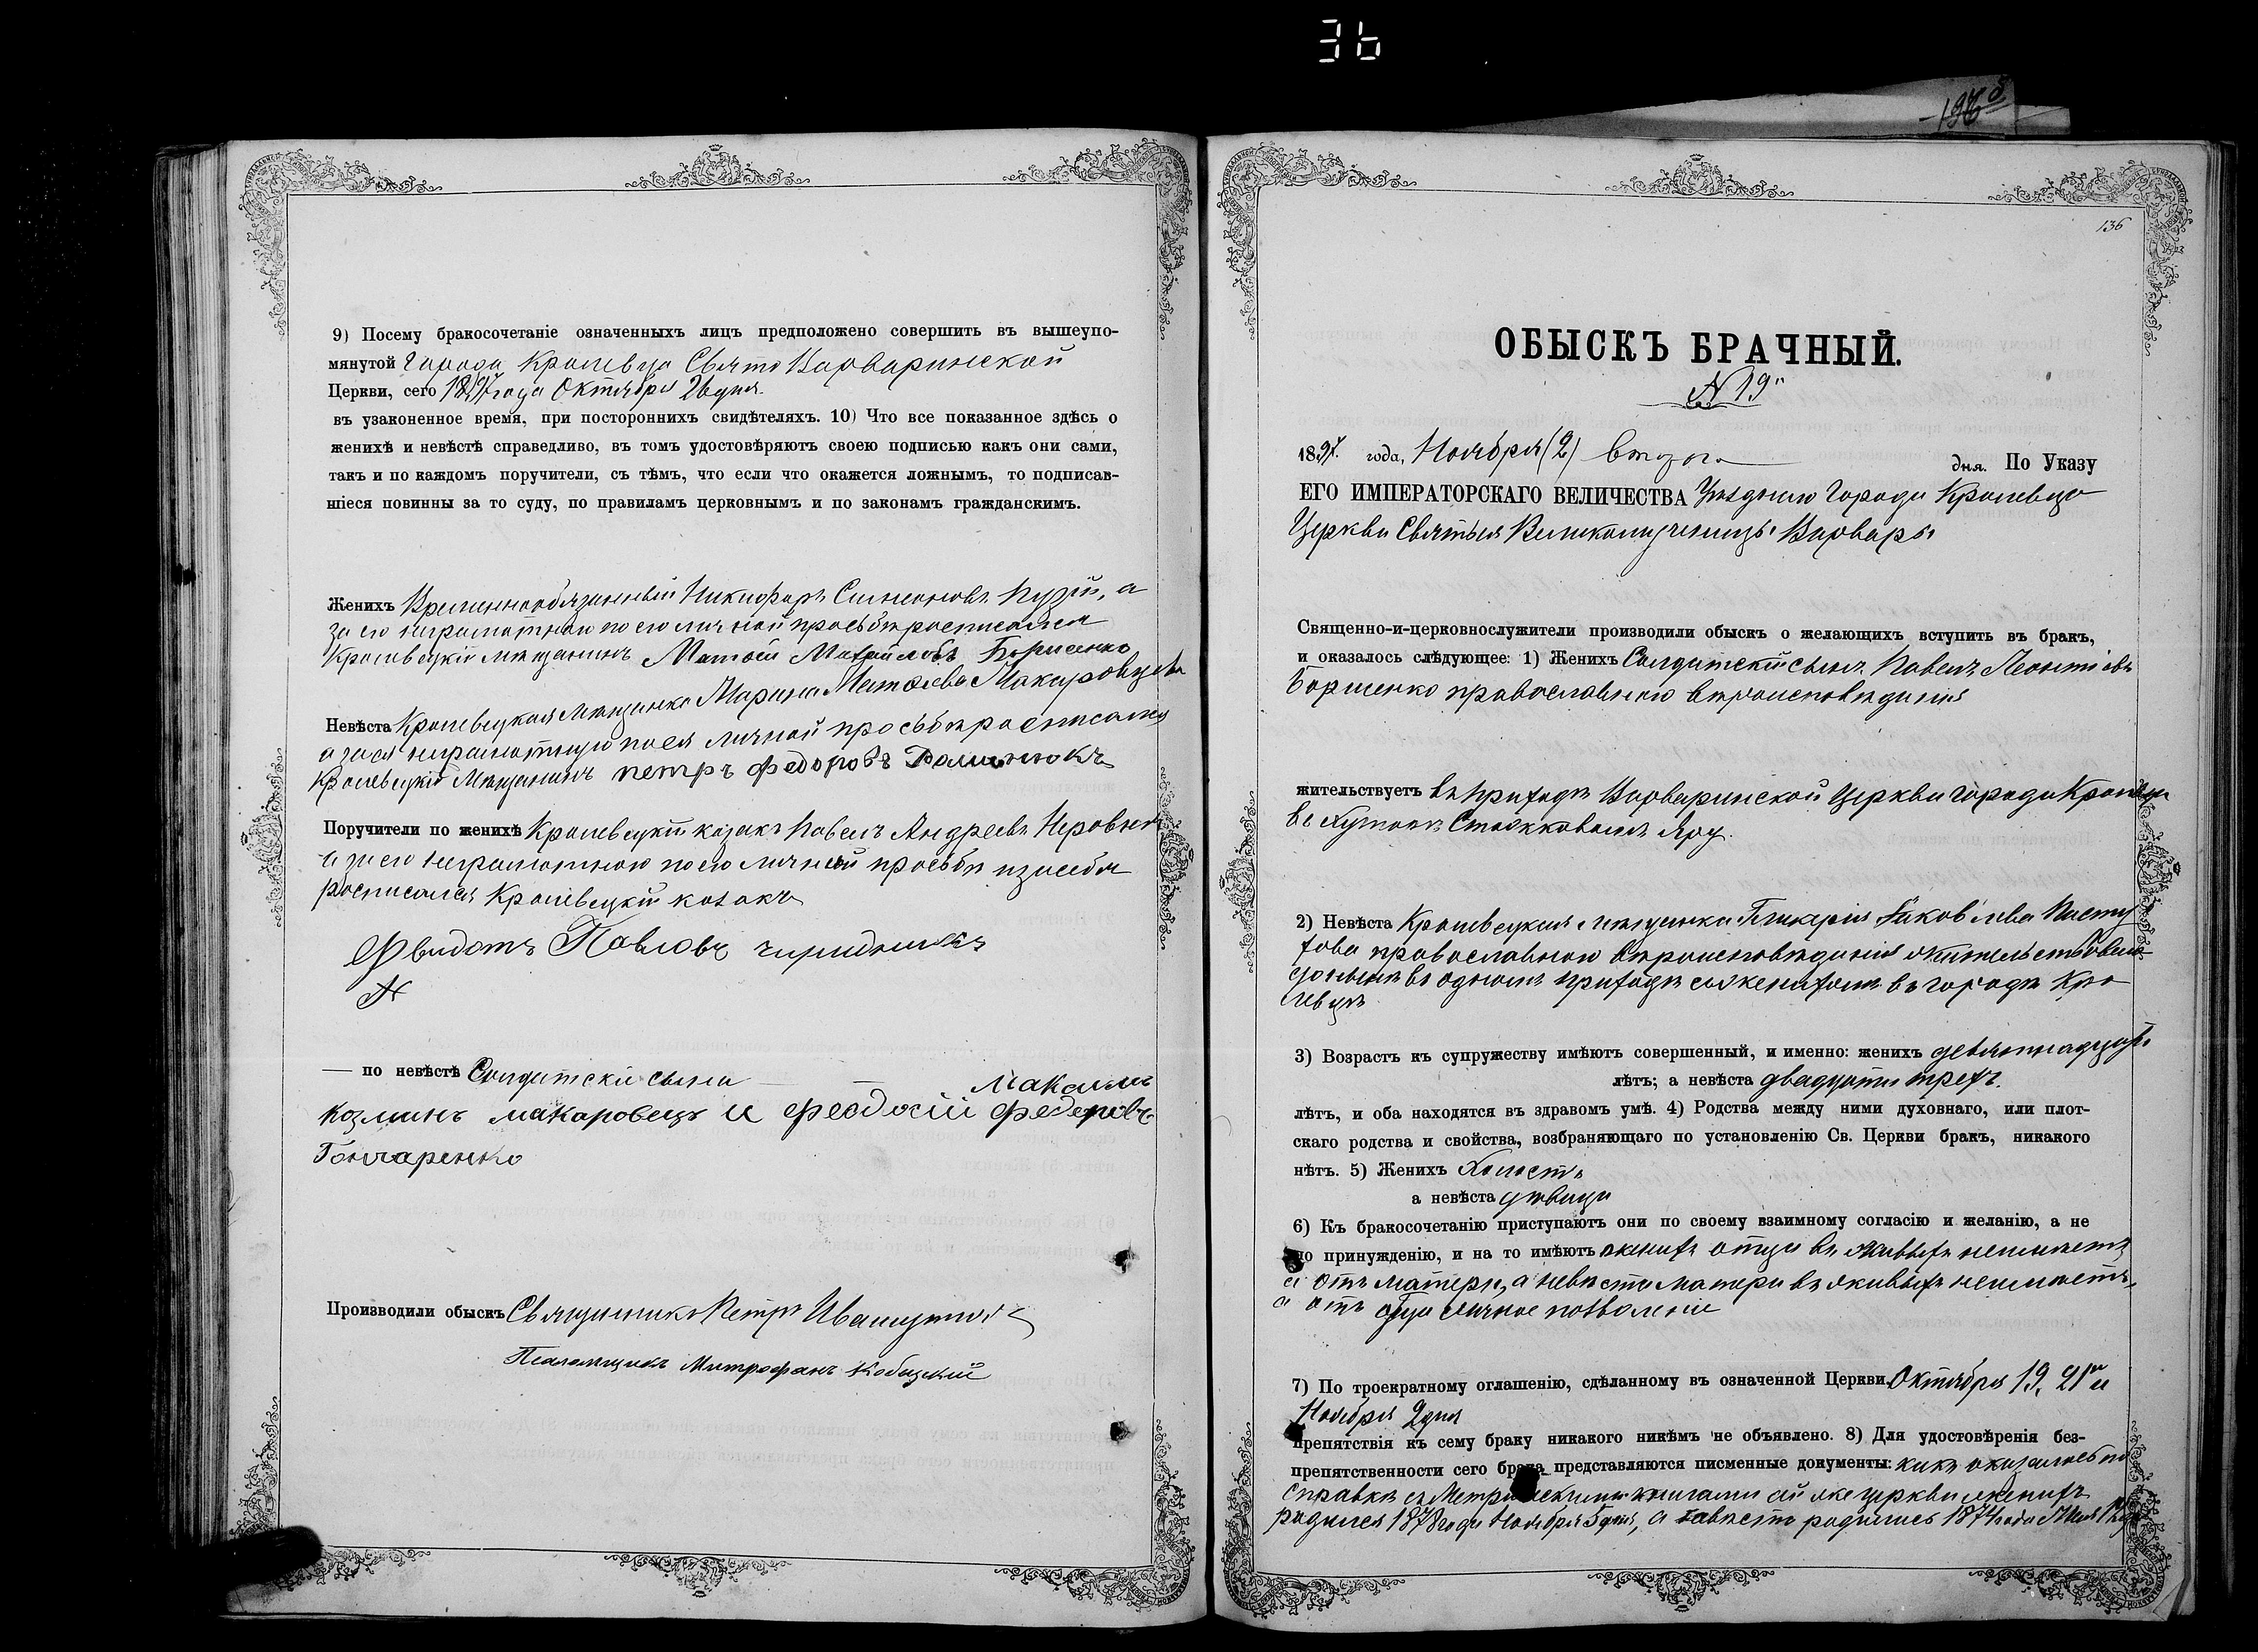 36
136
9) Посему бракосочетаніе означенныхъ лицъ предположено совершить въ вышеупо-
мянутой Города Кролевца Свято Варваринской
Церкви, сего 1897 года Октября 26 дня
въ узаконенное время, при постороннихъ свидѣтеляхъ. 10) Что все показанное здѣсь о
женихѣ и невѣстѣ справедливо, въ томъ удостовѣряютъ своею подписью какъ они сами,
такъ и по каждомъ поручители, съ тѣмъ, что если что окажется ложнымъ, то подписав-
шіеся повинны за то суду, по правиламъ церковнымъ и по законамъ гражданскимъ.
Женихъ Временнообязанный Никифоръ Симеоновъ Пузій, а
за его неграмотною по его личной прозьбѣ росписался
Кролевецкій мѣщанинъ Матвѣй Михайловъ Борисенко
Невѣста Кролевецкая Мѣщанка Марина Матвѣева Макаровцева
а за ея неграмотную по ея личной прозьбѣ росписался
Кролевецкій Мѣщанинъ петръ федоровъ
Поручители по женихѣ Кролевецкій козакъ Павелъ Андреевъ
а за его неграмотною по его личной прозьбѣ и за себя
росписался Кролевецкій козакъ
Павловъ
— по невѣстѣ Солдатскіе сыны максимъ
козминъ макаровецъ и феодосій федоровъ
Гончаренко
Производили обыскъ Священникъ Петръ
Псаломщикъ Митрофанъ Кобыцкій
ОБЫСКЪ БРАЧНЫЙ.
N 19
1897. года, Ноября (2) втораго дня. По Указу
ЕГО ИМПЕРАТОРСКАГО ВЕЛИЧЕСТВА Уѣзднаго Города Кролевца
Церкви Святыя Великомученицы Варвары
Священно-и-церковнослужители производили обыскъ о желающихъ вступить въ бракъ,
и оказалось слѣдующее: 1) Женихъ Солдатскій сынъ Павелъ Леонтіевъ
православнаго вѣроисповѣданія
жительствуетъ въ приходѣ Варваринской Церкви города Кролевца
въ хуторѣ Яру.
2) Невѣста Кролевецкая мѣщанка Гликерія Яковлева
православнаго вѣроисповѣданія жительствовала
до нынѣ въ одномъ приходѣ съ женихомъ въ городѣ Кро
левцѣ
3) Возрастъ къ супружеству имѣютъ совершенный, и именно: женихъ девятнадцать
лѣтъ; а невѣста двадцати трехъ.
лѣтъ, и оба находятся въ здравомъ умѣ. 4) Родства между ними духовнаго, или плот-
скаго родства и свойства, возбраняющаго по установленію Св. Церкви бракъ, никакого
нѣтъ. 5) Женихъ Холостъ
а невѣста дѣвица
6) Къ бракосочетанію приступаютъ они по своему взаимному согласію и желанію, а не
по принужденію, и на то имѣютъ женихъ отца въ живыхъ неимѣетъ
а отъ матери, а невѣста матери въ живыхъ неимѣетъ,
а отъ отца личное позволеніе
7) По троекратному оглашенію, сдѣланному въ означенной Церкви Октября 19, 21 и
Ноября 2 дня
препятствія къ сему браку никакого никѣмъ не объявлено. 8) Для удостовѣренія без-
препятственности сего брака представляются писменные документы: какъ оказалось по
справкѣ съ Метрическими книгами сей же церкви женихъ
родился 1878 года Ноября 5 дня, а невѣста родилась 1874 года